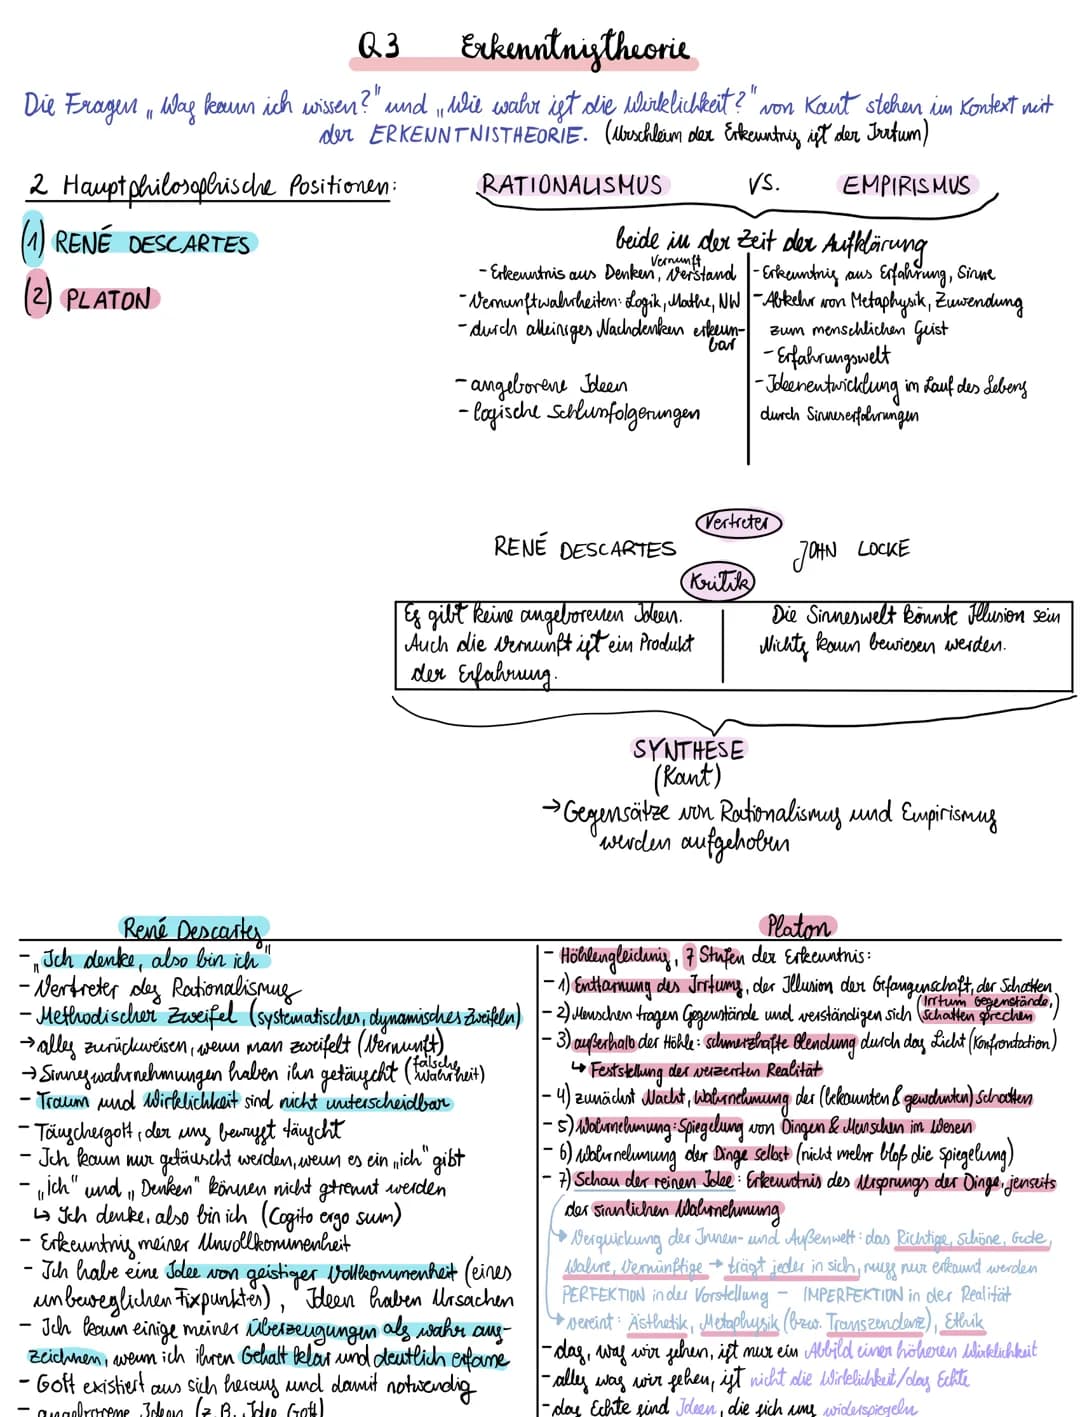 Q3 Erkenntnistheorie
Die Fragen „Was kann ich wissen?" und „Wie wahr ist die Wirklichkeit?" von Kant stehen im Kontext mit
der ERKENNTNISTHEORIE. (Urschleim der Erkenntnis ist der Irrtum)
2 Hauptphilosophische Positionen:
(1) RENÉ DESCARTES
(2) PLATON
RATIONALISMUS VS. EMPIRISMUS
beide in der Zeit der Aufklärung
Vernunft
- Erkenntnis aus Denken, Verstand
- Vernunftwahrheiten: Logik, Mathe, NW
- durch alleiniges Nachdenken erkenn-
bar
- angeborene Ideen
- logische Schlussfolgerungen
- Erkenntnis aus Erfahrung, Sinne
- Abkehr von Metaphysik, Zuwendung
zum menschlichen Geist
- Erfahrungswelt
- Ideenentwicklung im Lauf des Lebens
durch Sinneserfahrungen
Vertreter
RENÉ DESCARTES JOHN LOCKE
Kritik
Es gibt keine angeborenen Ideen.
Auch die Vernunft ist ein Produkt
der Erfahrung.
Die Sinneswelt könnte Illusion sein
Nichts kann bewiesen werden.
SYNTHESE
(Kant)
→ Gegensätze von Rationalismus und Empirismus
werden aufgehoben
René Descartes
- „Ich denke, also bin ich"
- Vertreter des Rationalismus
- Methodischer Zweifel (systematisches, dynamisches Zweifeln)
→ alles zurückweisen, wenn man zweifelt (Vernunft)
→ Sinneswahrnehmungen haben ihn getäuscht (falsche Wahrheit)
- Traum und Wirklichkeit sind nicht unterscheidbar
- Täuschergott, der uns bewusst täuscht
- Ich kann nur getäuscht werden, wenn es ein „ich" gibt
- „ich" und „Denken" können nicht getrennt werden
↳ Ich denke, also bin ich (Cogito ergo sum)
- Erkenntnis meiner Unvollkommenheit
- Ich habe eine Idee von geistiger Vollkommenheit (eines
unbeweglichen Fixpunktes), Ideen haben Ursachen
- Ich kann einige meiner Überzeugungen als wahr aus-
zeichnen, wenn ich ihren Gehalt klar und deutlich erfasse
- Gott existiert aus sich heraus und damit notwendig
- angeborene Ideen (z.B. Idee Gott)
Platon
- Höhlengleichnis, 7 Stufen der Erkenntnis:
- 1) Enttarnung des Irrtums, der Illusion der Gefangenschaft, der Schatten
- 2) Menschen tragen Gegenstände und verständigen sich (Irrtum Gegenstände,
Schatten sprechen)
- 3) außerhalb der Höhle: schmerzhafte Blendung durch das Licht (Konfrontation)
↳ Feststellung der verzerrten Realität
- 4) zunächst Nacht, Wahrnehmung der (bekannten & gewohnten) Schatten
- 5) Wahrnehmung: Spiegelung von Dingen & Menschen im Wasser
- 6) Wahrnehmung der Dinge selbst (nicht mehr bloß die Spiegelung)
- 7) Schau der reinen Idee: Erkenntnis des Ursprungs der Dinge, jenseits
der sinnlichen Wahrnehmung
↳ Verquickung der Innen- und Außenwelt: das Richtige, Schöne, Gute,
Wahre, Vernünftige → trägt jeder in sich, muss nur erkannt werden
PERFEKTION in der Vorstellung – IMPERFEKTION in der Realität
↳ vereint: Ästhetik, Metaphysik (bzw. Transzendenz), Ethik
- das, was wir sehen, ist nur ein Abbild einer höheren Wirklichkeit
- alles was wir sehen, ist nicht die Wirklichkeit/das Echte
- das Echte sind Ideen, die sich uns widerspiegeln